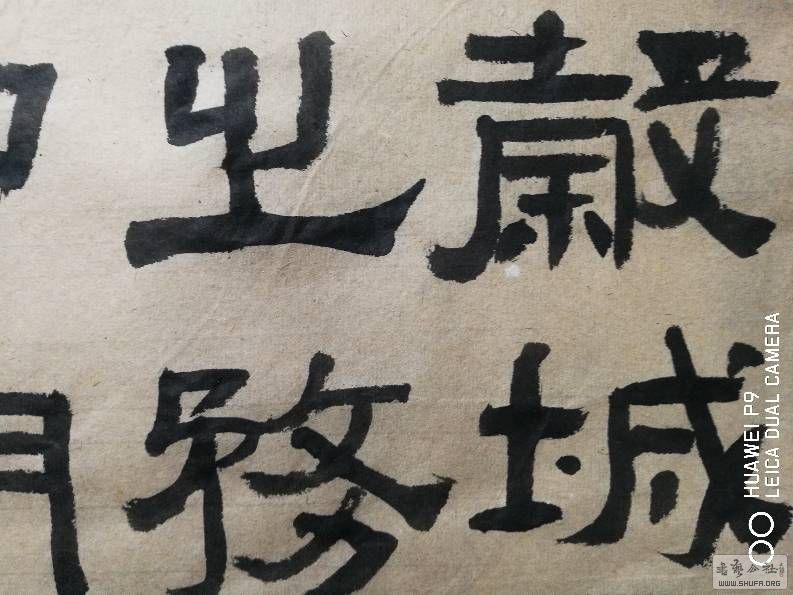 穀城
之務
HUAWEI P9
LEICA DUAL CAMERA
书艺公社
WWW.SHUFA.ORG